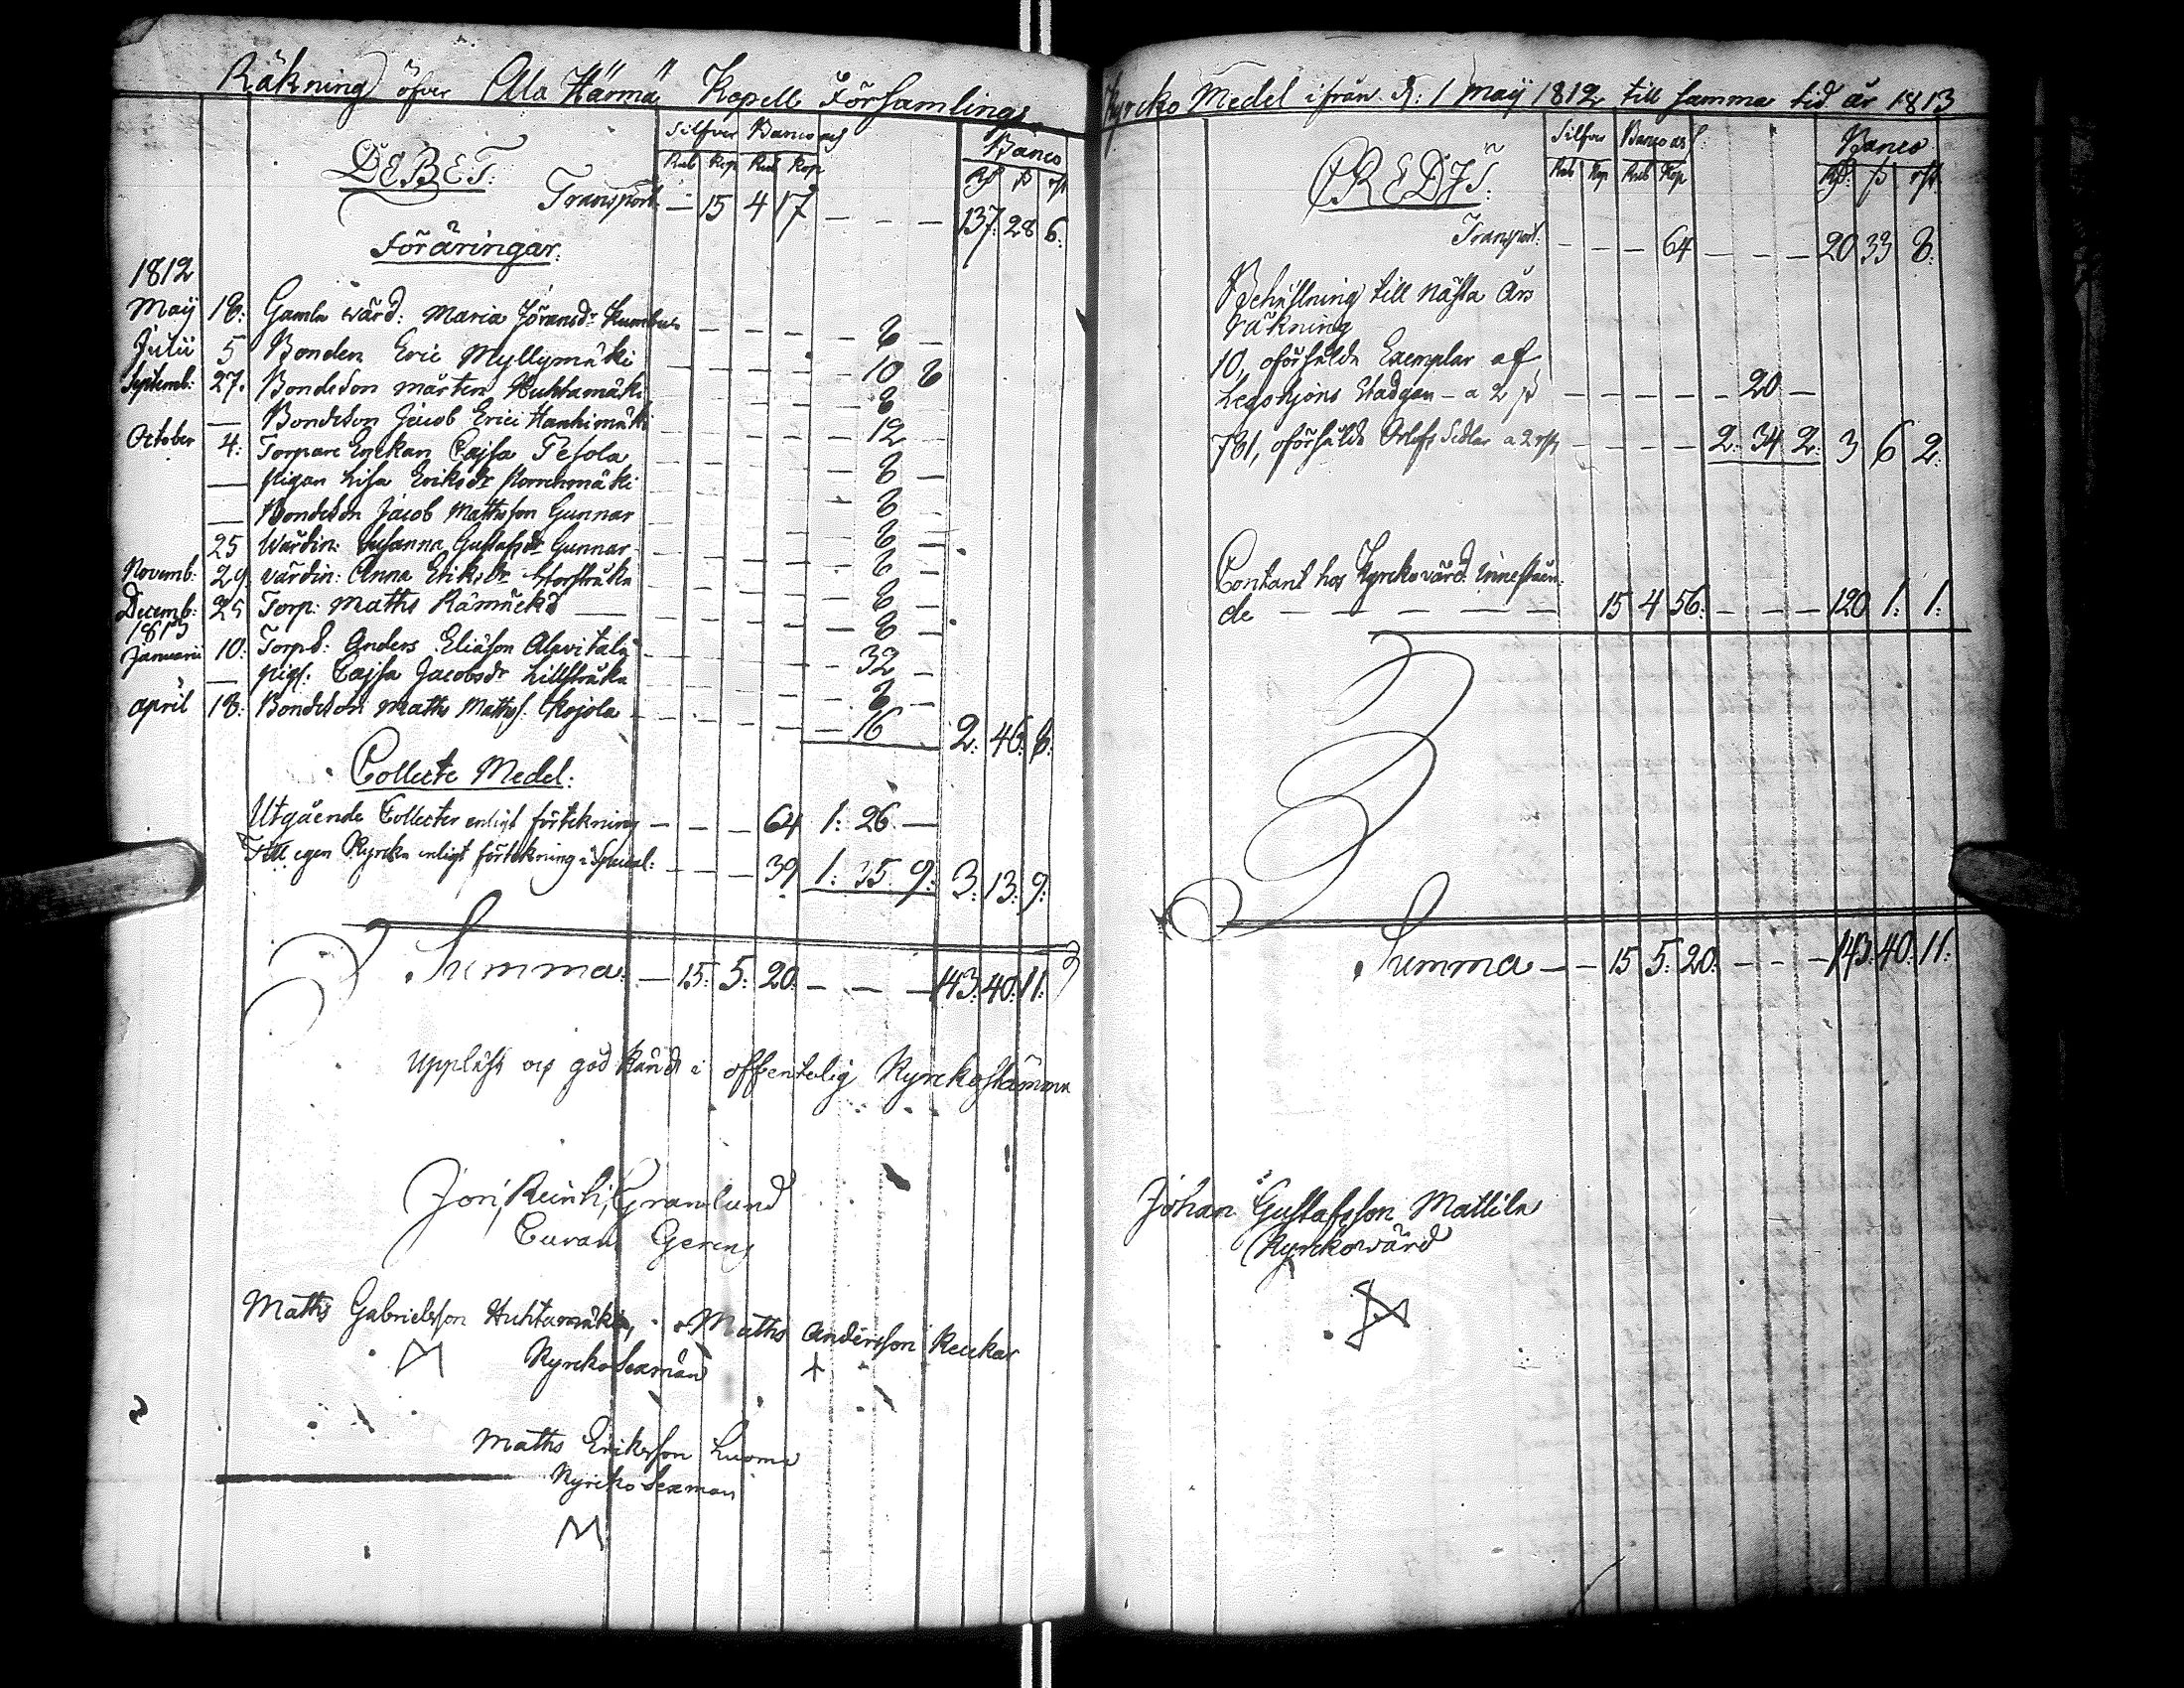 Räkning öfver Ala Härmä Kapell Församlings
DEBET:
Silfver Banco
Rub Kop Rub Kop
Banco
Rd ß rst
Transport — 15 4 17 — — — 137: 28 6:
Föräringar:
1812
Maÿ 18: Gamla värd: Maria Jöransdr — — — — 8 —
Julii 5 Bonden Eric Myllymäki — — — — 10 8
Septemb: 27. Bondeson Mårten Huhtamäki — — — — 8 —
— Bondeson Jacob Erici Hanhimäki — — — — 12 —
October 4: Torpare Enkan Cajsa Pesola — — — — 8 —
— Pigan Lisa Eriksdr — — — — 8 —
— Bondeson Jacob Mathsson Gunnar — — — — 8 —
25 Wärdin: Susanna Gustafsdr Gunnar — — — — 8 —
Novemb: 29 värdin: Anna Eriksdr Storstråka — — — — 8 —
Decemb: 25 Torp: Maths — — — — 8 —
1813
Januarii 10: Torps: Anders Eliäson Alavitala — — — — 32 —
— pig: Cajsa Jacobsdr Lillstråka — — — — 8 —
april 18: Bondeson Maths Mathss: Kojola — — — — 16 2: 46: 8:
Collecte Medel:
Utgående Collecter enligt förtekning — — — 64 1: 26 —
Till egen Kyrcka enligt förtekning i Special: — — — 39 1: 35 9: 3: 13: 9:
Summa: — 15: 5: 20: — — — 143: 40: 11:
Uppläst och godkänd i offentelig Kyrckostämma
Jori, Reinh, Granlund
Curam Gerens
Maths Gabrielsson Huhtamäki, Maths Andersson Reukas
Kyrcko Sexmän
Maths Eriksson Luoma
Kyrcko Sexman
Kyrcko Medel ifrån d: 1 Maÿ 1812 till samma tid år 1813
CREDIT:
Silfver Banco
Rub Kop Rub Kop
Banco
Rd: ß rst
Transport: — — — 64 — — — 20 33 8:
Behållning till nästa Års
räkning
10, oförsålda Exemplar af
Legohjons Stadgan — a 2 ß — — — — — 20 —
781, oförsålde Sedlar a 2 rst — — — — 2: 34 2: 3 6 2:
Contant hos Kyrckovärd: innestäen-
de — — — — — 15 4 56: — — — 120 1: 1:
Summa — — 15 5: 20: — — — 143: 40: 11:
Johan Gustafsson Mattila
Kyrckovärd